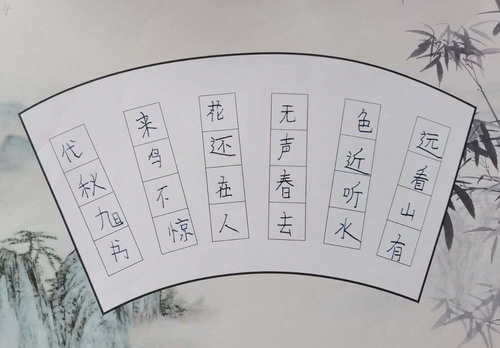 远看山有
色近听水
无声春去
花还在人
来鸟不惊
代秋旭书